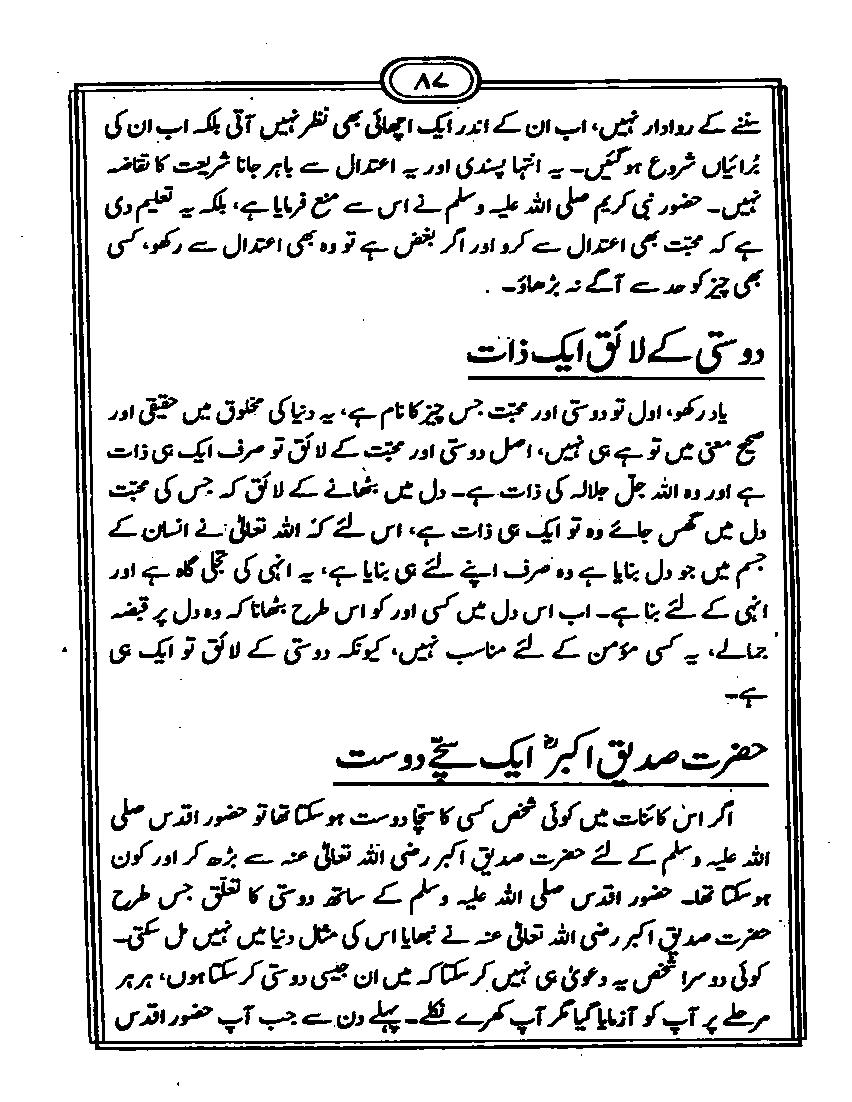 ۸۷
سننے کے روادار نہیں، اب ان کے اندر ایک اچھائی بھی نظر نہیں آتی بلکہ اب ان کی
برائیاں شروع ہوگئیں۔ یہ انتہا پسندی اور یہ اعتدال سے باہر جانا شریعت کا تقاضہ
نہیں۔ حضور نبی کریم صلی اللہ علیہ وسلم نے اس سے منع فرمایا ہے، بلکہ یہ تعلیم دی
ہے کہ محبت بھی اعتدال سے کرو اور اگر بغض ہے تو وہ بھی اعتدال سے رکھو، کسی
بھی چیز کو حد سے آگے نہ بڑھاؤ۔
دوستی کے لائق ایک ذات
یاد رکھو، اول تو دوستی اور محبت جس چیز کا نام ہے، یہ دنیا کی مخلوق میں حقیقی اور
صحیح معنی میں تو ہے ہی نہیں، اصل دوستی اور محبت کے لائق تو صرف ایک ہی ذات
ہے اور وہ اللہ جل جلالہ کی ذات ہے۔ دل میں بٹھانے کے لائق کہ جس کی محبت
دل میں گھس جائے وہ تو ایک ہی ذات ہے، اس لئے کہ اللہ تعالیٰ نے انسان کے
جسم میں جو دل بنایا ہے وہ صرف اپنے لئے ہی بنایا ہے، یہ انہی کی تجلی گاہ ہے اور
انہی کے لئے بنا ہے۔ اب اس دل میں کسی اور کو اس طرح بٹھانا کہ وہ دل پر قبضہ
جمالے، یہ کسی مؤمن کے لئے مناسب نہیں، کیونکہ دوستی کے لائق تو ایک ہی
ہے۔
حضرت صدیق اکبرؓ ایک سچے دوست
اگر اس کائنات میں کوئی شخص کسی کا سچا دوست ہوسکتا تھا تو حضور اقدس صلی
اللہ علیہ وسلم کے لئے حضرت صدیق اکبر رضی اللہ تعالیٰ عنہ سے بڑھ کر اور کون
ہوسکتا تھا۔ حضور اقدس صلی اللہ علیہ وسلم کے ساتھ دوستی کا تعلق جس طرح
حضرت صدیق اکبر رضی اللہ تعالیٰ عنہ نے نبھایا اس کی مثال دنیا میں نہیں مل سکتی۔
کوئی دوسرا شخص یہ دعویٰ ہی نہیں کرسکتا کہ میں ان جیسی دوستی کرسکتا ہوں، ہر ہر
مرحلے پر آپ کو آزمایا گیا مگر آپ کھرے نکلے۔ پہلے دن سے جب آپ حضور اقدس